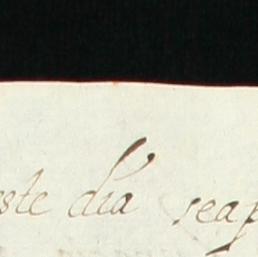 ste dia seap